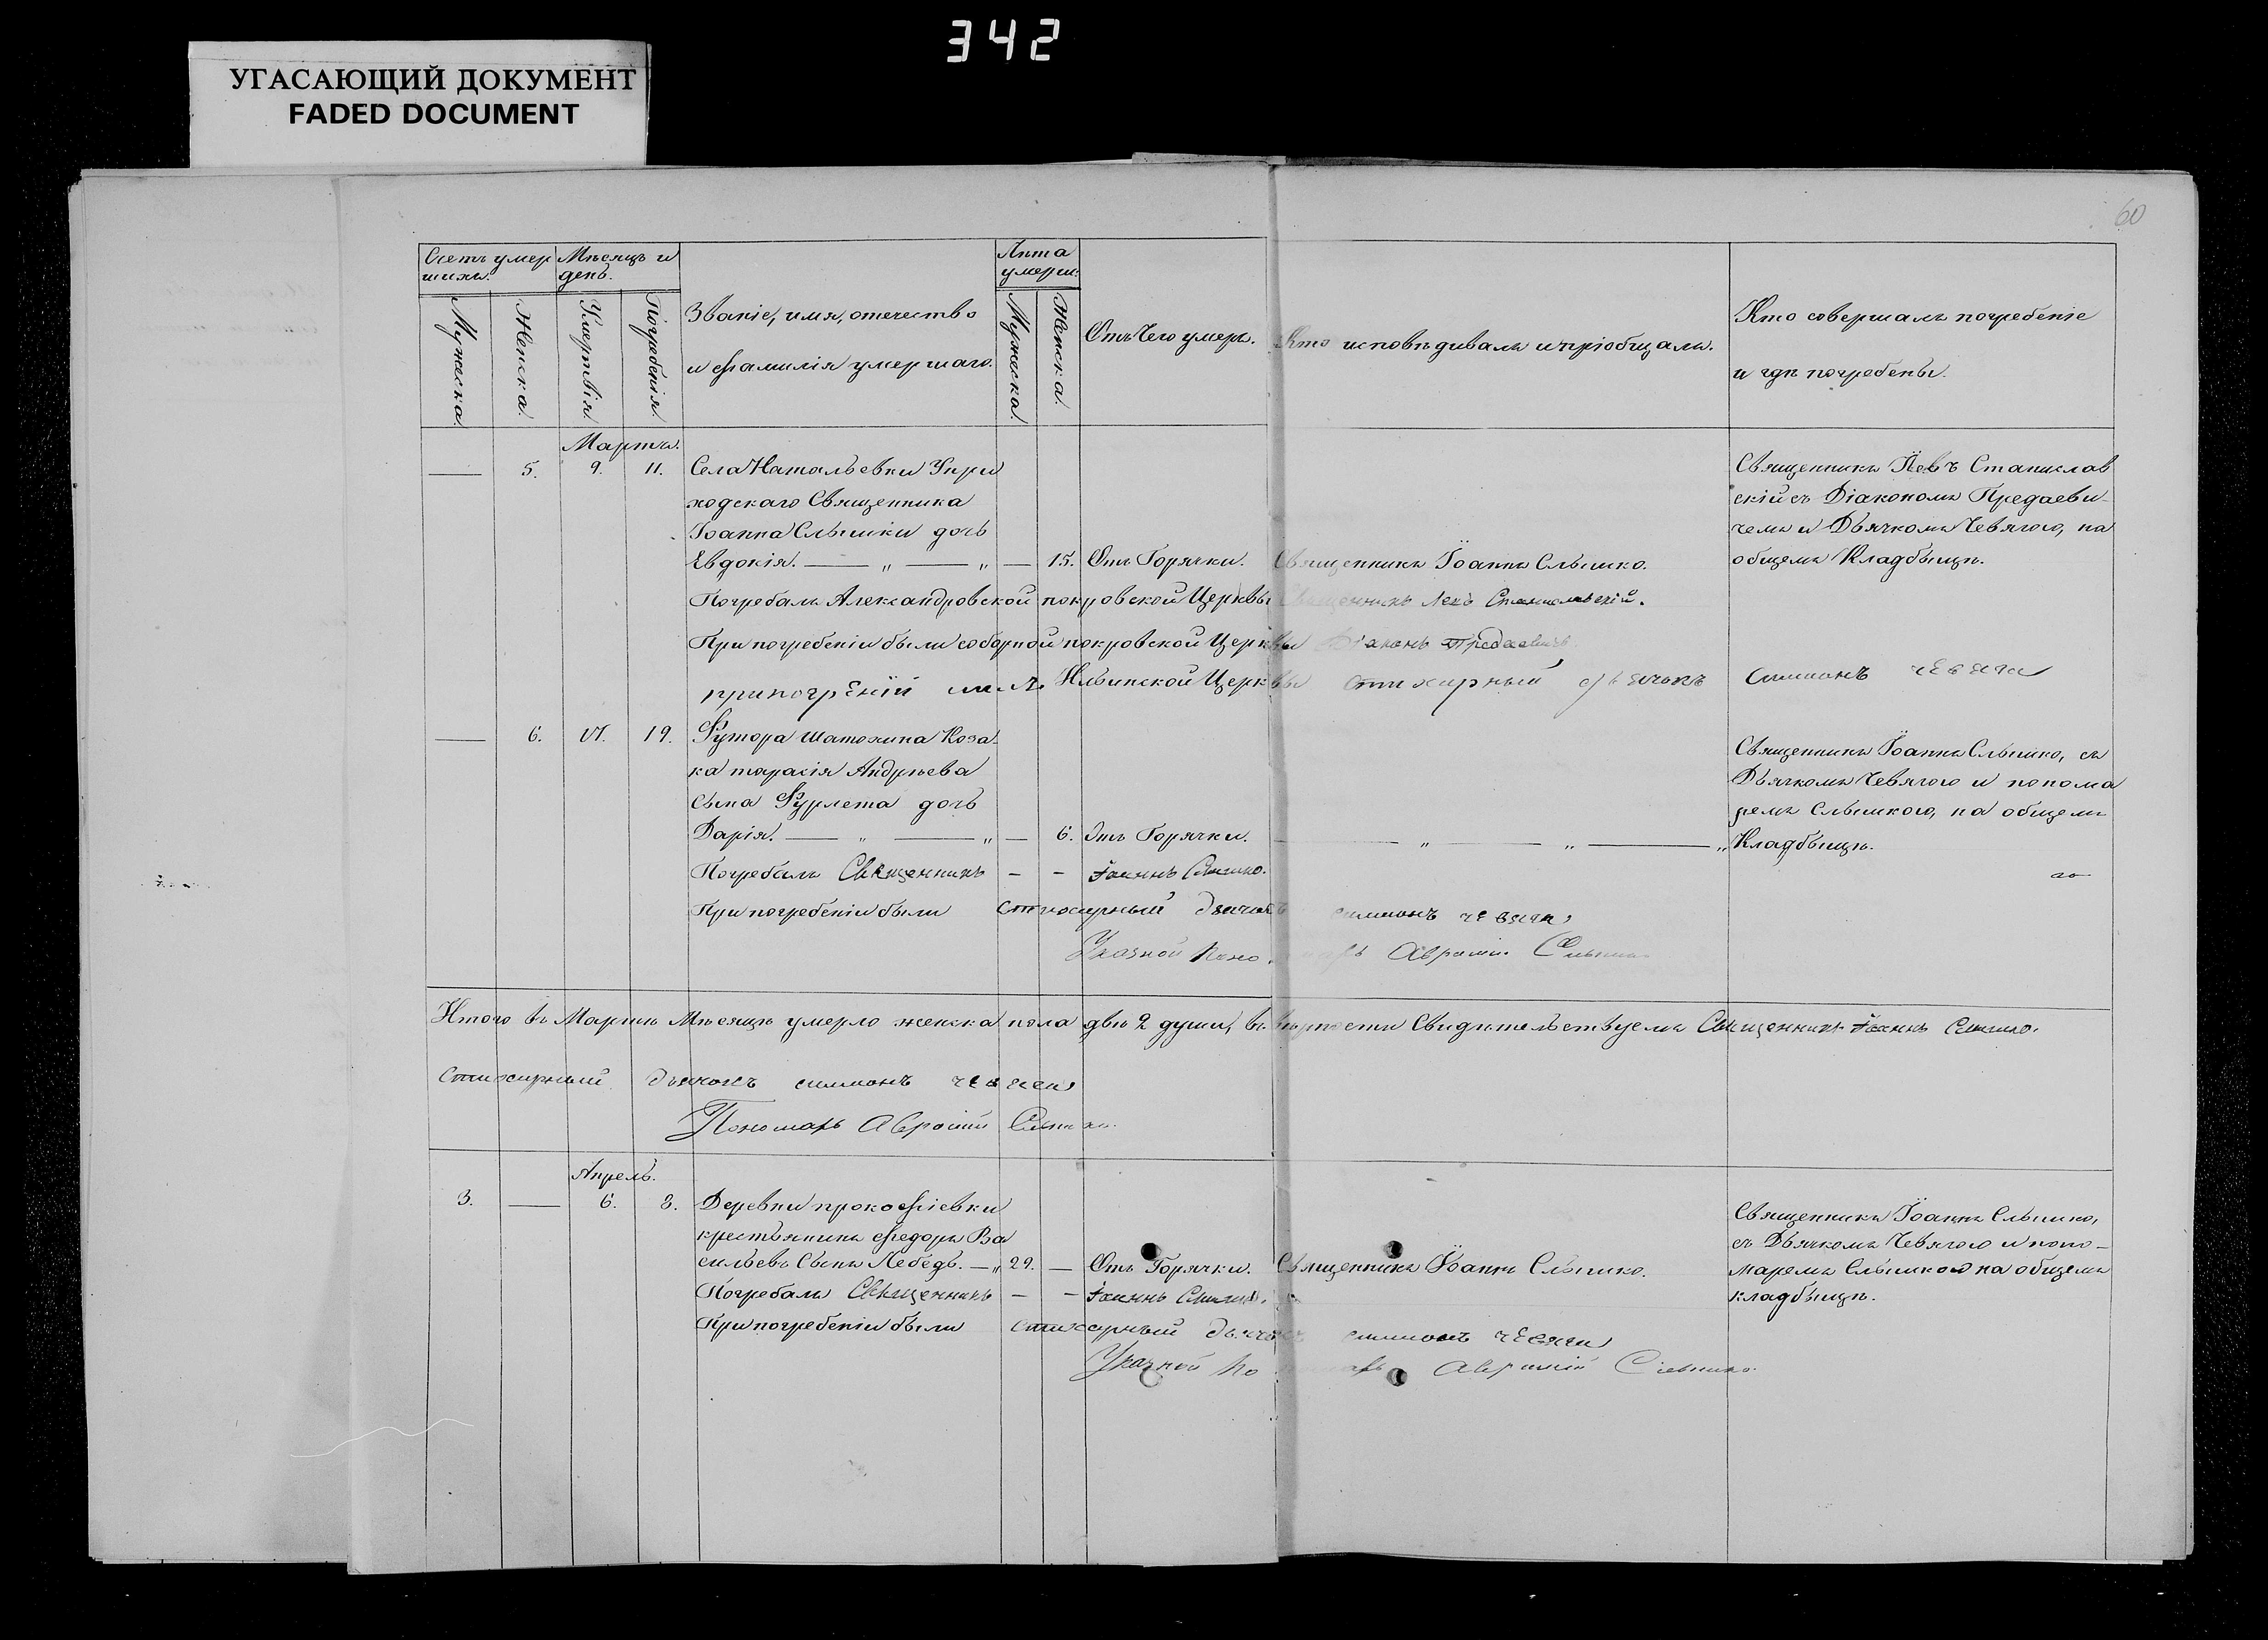 342
УГАСАЮЩИЙ ДОКУМЕНТ
FADED DOCUMENT
60
Счетъ умер
шихъ.
Мѣсяцъ и
день.
Лѣта
умерш:
Мужеска.
Женска.
Умертвія.
Погребенія.
Званіе, имя, отечество
и фамилія умершаго.
Мужеска.
Женска.
Отъ Чего умеръ.
Кто исповѣдивалъ и пріобщалъ.
Кто совершалъ погребеніе
и гдѣ погребены.
Марта.
— 5. 9. 11. Села Натальевки Упри
ходскаго Священника
Іоанна Слышки дочь
Евдокія. — „ — „ — 15. Отъ Горячки. Священникъ Іоаннъ Слышко.
Священникъ Левъ Станислав
скій съ Діакономъ Предаеви-
чемъ и Дьячкомъ Чевягою, на
общемъ Кладбыщѣ.
Погребалъ Александровской покровской Церквы Священникъ Левъ Станиславскій.
При погребеніи были соборной покровской Церквы Діаконъ Предаевичъ
Ильинской Церквы стихарный дьячокъ симионъ чевяга
— 6. 17. 19. Хутора шатохина Коза-
ка тарасія Андрѣева
Сына Хурлета дочь
Дарія. — „ — „ — 6. Отъ Горячки. — „ — „ — „
Священникъ Іоаннъ Слышко, съ
Дьячкомъ Чевягою и понома
ремъ слышкою, на общемъ
Кладбыщѣ.
Погребалъ Священникъ — — Іоаннъ Слышко.
При погребеніи были стихарный дячокъ симионъ чевяга
Указной Поно марь Аврамій Слышко
Итого въ Мартѣ Мѣсяцѣ умерло женска пола двѣ 2 души, въ вѣрности Свидѣтельствуемъ Священникъ Іоаннъ Слышко.
Стихарный дьячокъ симионъ чевяга
Пономарь Аврамій Слышко.
Апрель.
3. — 6. 8. Деревни прокофіевки
крестьянинъ федоръ Ва
сильевъ Сынъ Лебедь. — „ 29. — Отъ Горячки. Священникъ Іоаннъ Слышко.
Священникъ Іоаннъ Слышко,
съ Дьячкомъ Чевягою и поно-
маремъ Слышкою на общемъ
кладбыщѣ.
Погребалъ Священникъ — — Іоаннъ Слышко.
При погребеніи были стихарный дьячокъ симионъ чевяга
Указной По номарь Аврамій Слышко.